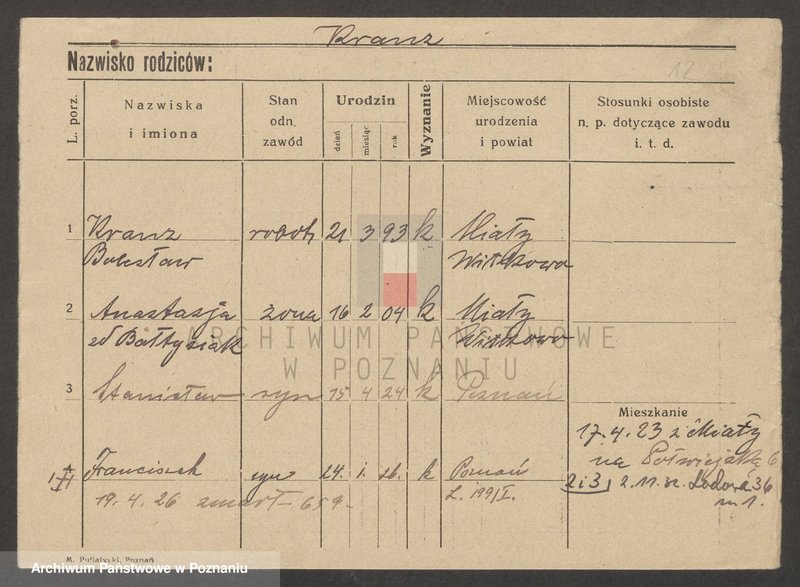 Kranz
Nazwisko rodziców:
12
L. porz.
Nazwiska i imiona
Stan odn. zawód
Urodzin
dzień
miesiąc
rok
Wyznanie
Miejscowość urodzenia i powiat
Stosunki osobiste n. p. dotyczące zawodu i. t. d.
1 Kranz robotn 21 3 93 k Miaty
Bolesław Witkowo
2 Anastazja żona 16 2 04 k Miaty
zd Bałtysiak Witkowo
ARCHIWUM PAŃSTWOWE
W POZNANIU
3 Stanisław syn 15 4 24 k Poznań
Mieszkanie
17.4.23 z Miaty
na 6
Franciszek syn 24. 1. 26. k Poznań
2 i 3) 2.11.32. Lodowa 36
m 1.
19.4.26 zmarł 659.
L. 199/I.
M. Putiatycki, Poznań
Archiwum Państwowe w Poznaniu